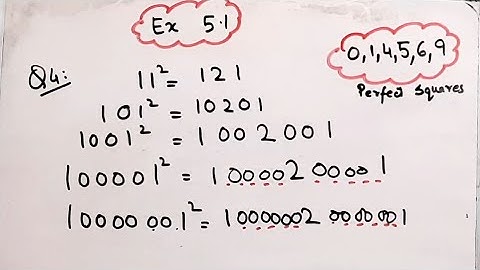 Ex 5.1
0,1,4,5,6,9
Perfect Squares
Q4:
11² = 121
101² = 10201
1001² = 1002001
100001² = 10000200001
10000001² = 100000020000001